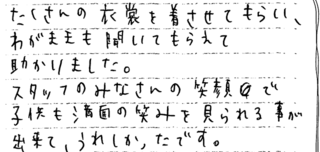 たくさんの衣裳を着させてもらい、
わがままも聞いてもらえて
助かりました。
スタッフのみなさんの笑顔で
子供も満面の笑みを見られる事が
出来て、うれしかったです。